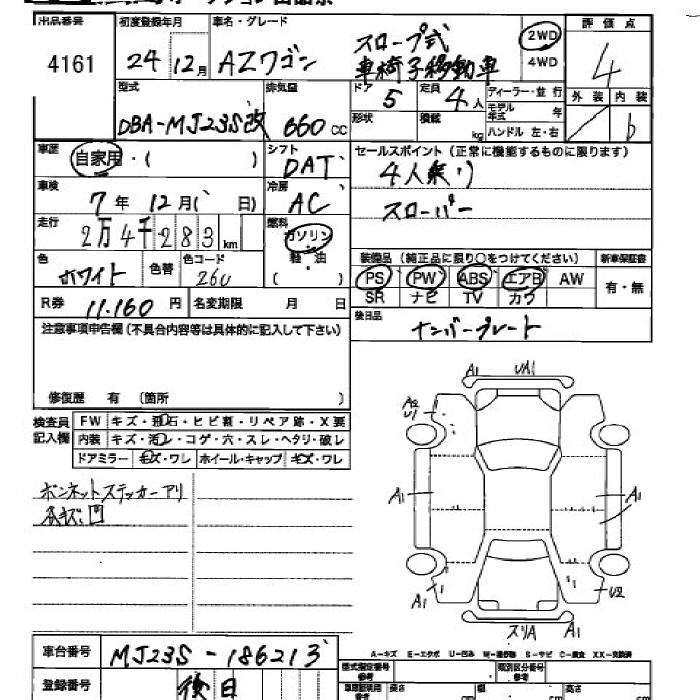 出品番号 4161
初度登録年月 24 12月
車名・グレード AZワゴン スロープ式 車椅子移動車
2WD 4WD
評価点 4
外装 内装 b
型式 DBA-MJ23S改
排気量 660 cc
ドア 5
定員 4人
形状
積載 kg
ディーラー・並行
モデル年式 年
ハンドル 左・右
車歴 自家用・( )
シフト DAT
セールスポイント (正常に機能するものに限ります)
4人乗り
スローパー
車検 7年 12月( 日)
冷房 AC
走行 2万4千283 km
燃料 ガソリン 軽・油 ( )
色 ホワイト
色替
色コード 26U
装備品 (純正品に限り○をつけてください)
新車保証書
PS PW ABS エアB AW
有・無
SR ナビ TV カワ
R券 11.160 円
名変期限 月 日
後日品 ナンバープレート
注意事項申告欄 (不具合内容等は具体的に記入して下さい)
修復歴 有 〔箇所 〕
検査員記入欄
FW キズ・飛石・ヒビ割・リペア跡・X要
内装 キズ・汚レ・コゲ・穴・スレ・ヘタリ・破レ
ドアミラー キズ・ワレ ホイール・キャップ キズ・ワレ
ボンネットステッカーアリ
各キズ凹
A1 UA1
A2
U1
A1 A1
A1 U2
スリA A1
A-キズ E-エクボ U-凹み W-補修跡 S-サビ C-腐食 XX-交換済
車台番号 MJ23S-186213
型式指定番号
類別区分番号
登録番号 後日
長さ cm 幅 cm 高さ cm